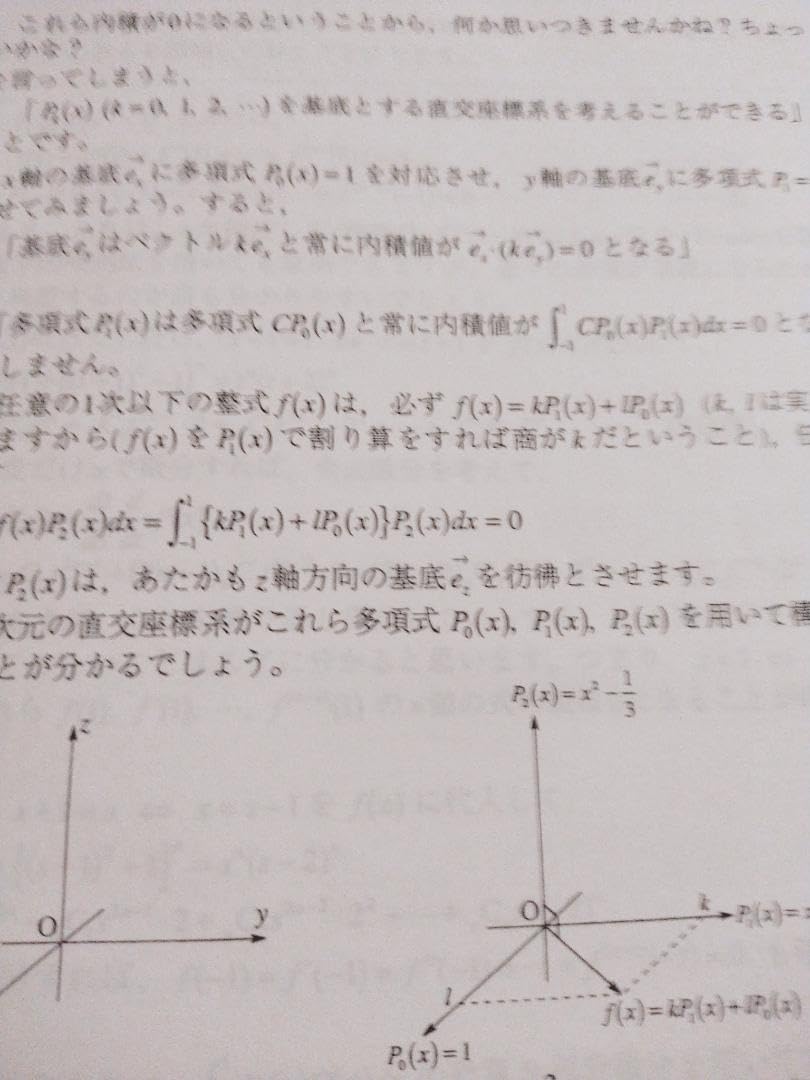 これら内積が0になるということから，何か思いつきませんかね？ちょっ
いかな？
を言ってしまうと，
「Pₖ(x) (k=0, 1, 2, …) を基底とする直交座標系を考えることができる」
とです。
x軸の基底e⃗ₓに多項式 P₀(x)=1 を対応させ，y軸の基底e⃗ᵧに多項式 P₁=
せてみましょう。すると，
「基底e⃗ₓはベクトルke⃗ᵧと常に内積値が e⃗ₓ·(ke⃗ᵧ)=0 となる」
「多項式P₁(x)は多項式 CP₀(x) と常に内積値が ∫₋₁¹ CP₀(x)P₁(x)dx=0 とな
しません。
任意の1次以下の整式f(x)は，必ず f(x)=kP₁(x)+lP₀(x) (k, lは実
ますから(f(x)をP₁(x)で割り算をすれば商がkだということ)，
f(x)P₂(x)dx=∫₋₁¹{kP₁(x)+lP₀(x)}P₂(x)dx=0
P₂(x)は，あたかもz軸方向の基底e⃗_zを彷彿とさせます。
次元の直交座標系がこれら多項式 P₀(x), P₁(x), P₂(x) を用いて構
とが分かるでしょう。
P₂(x)=x²−1/3
z
O
y
O
k
P₁(x)=x
l
f(x)=kP₁(x)+lP₀(x)
P₀(x)=1